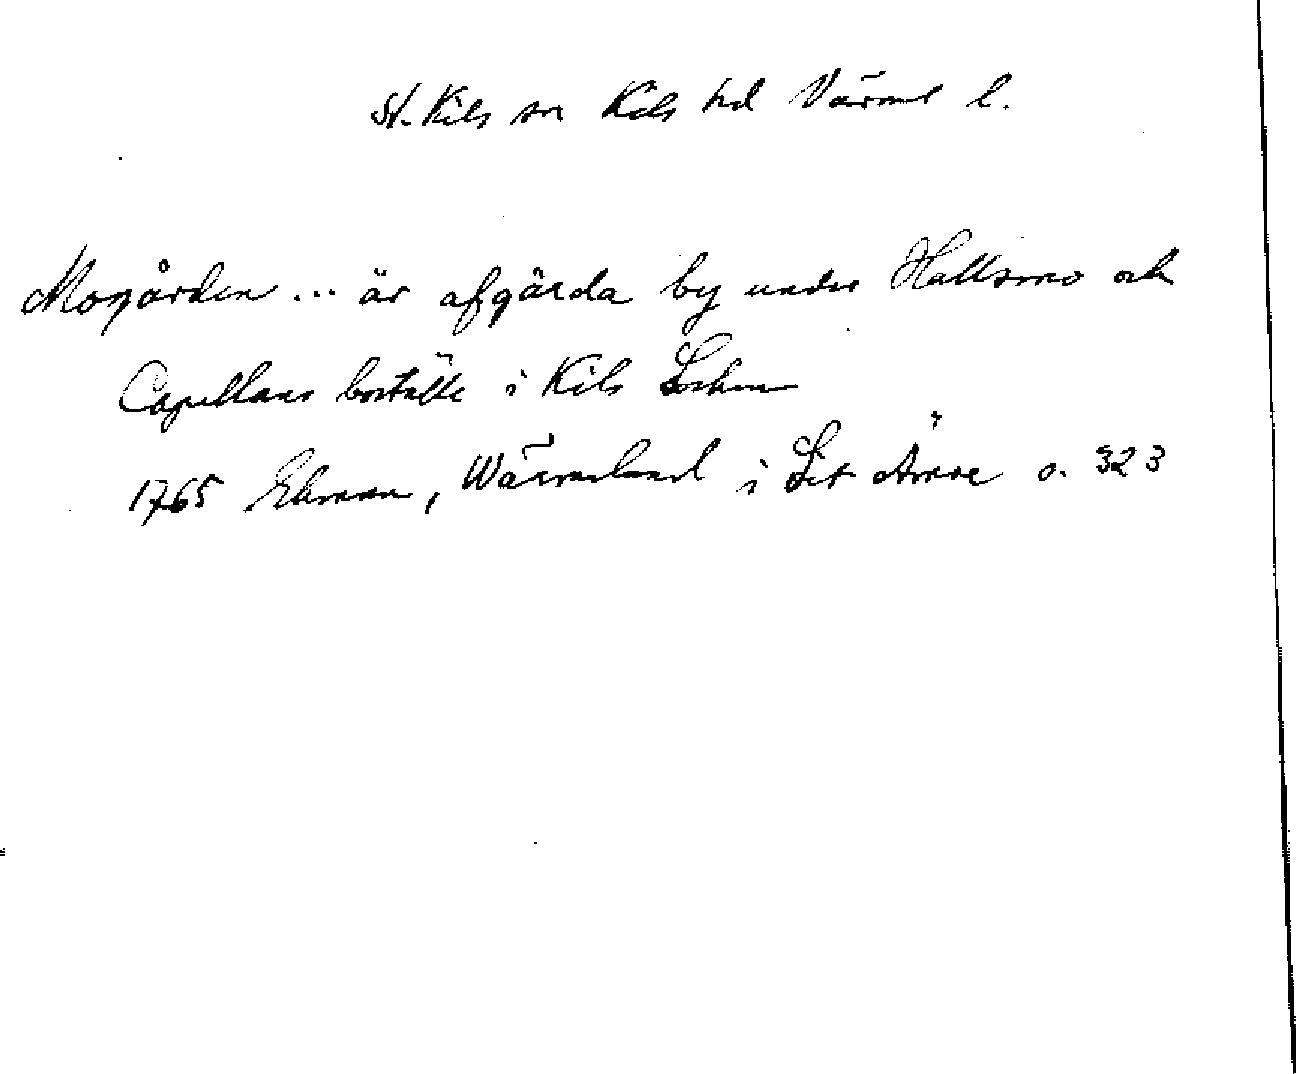 St. Kils sn Kils hd Värml l.
Mogården ... är afgärda by under Hallsmo och
Capellans boställe i Kils Sokn
1765 Ehrman, Wärmeland i Sit Ämne s. 323